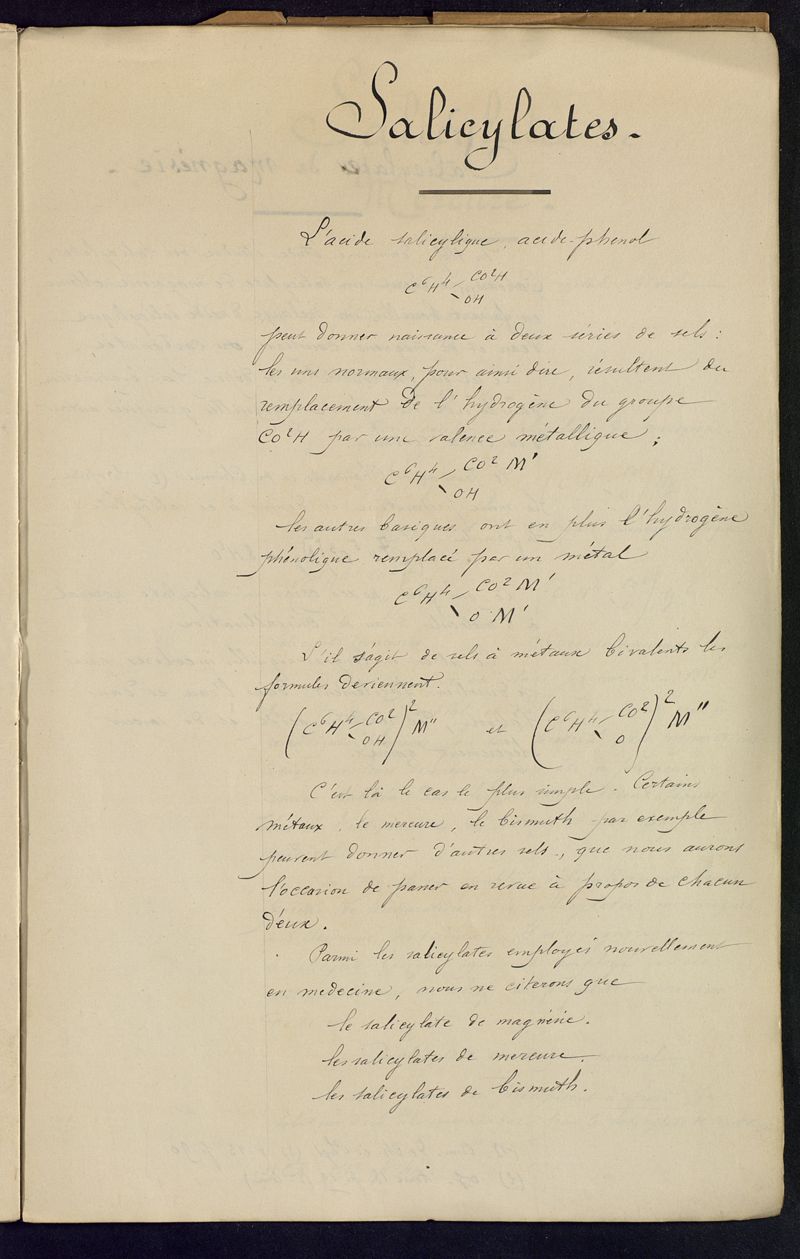 Salicylates.
L'acide salicylique, acide-phénol
C⁶H⁴ CO²H
OH
peut donner naissance à deux séries de sels :
les uns normaux, pour ainsi dire, résultent du
remplacement de l'hydrogène du groupe
CO²H par une valence métallique ;
C⁶H⁴ CO² M'
OH
les autres basiques ont en plus l'hydrogène
phénolique remplacé par un métal
C⁶H⁴ CO² M'
O M'
S'il s'agit de sels à métaux bivalents les
formules deviennent.
(C⁶H⁴ CO² OH)² M'' et (C⁶H⁴ CO² O)² M''
C'est là le cas le plus simple. Certains
métaux, le mercure, le bismuth par exemple
peuvent donner d'autres sels, que nous aurons
l'occasion de passer en revue à propos de chacun
d'eux.
Parmi les salicylates employés nouvellement
en medecine, nous ne citerons que
le salicylate de magnésie.
les salicylates de mercure.
les salicylates de bismuth.